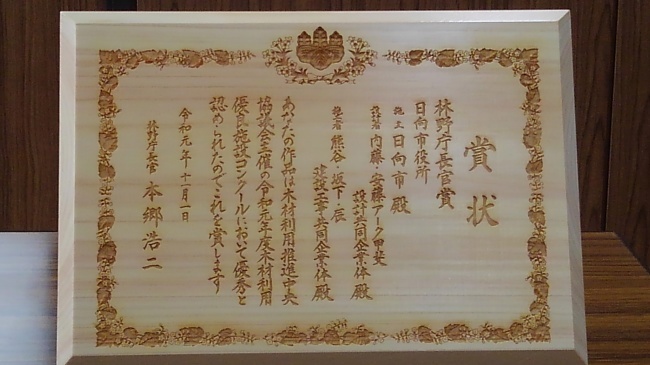 賞状
林野庁長官賞
日向市役所
施主 日向市 殿
設計者 内藤・安藤・アーク甲斐
設計共同企業体 殿
施工者 熊谷・坂下・辰
建設工事共同企業体 殿
あなたの作品は木材利用推進中央
協議会主催の令和元年度木材利用
優良施設コンクールにおいて優秀と
認められたのでこれを賞します
令和元年十一月一日
林野庁長官 本郷浩二